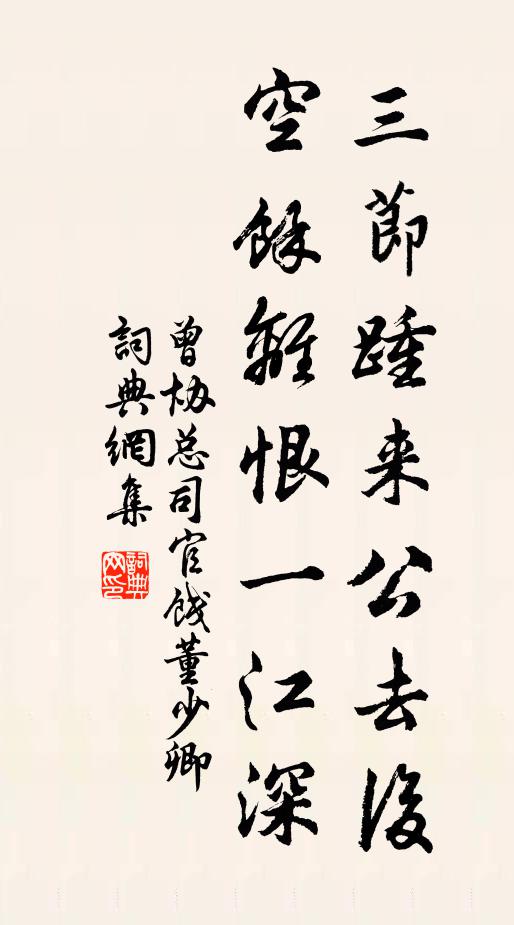 三節踵来公去後
空餘離恨一江深
曾协总司官餞董少卿
詞典網集
詞典网印